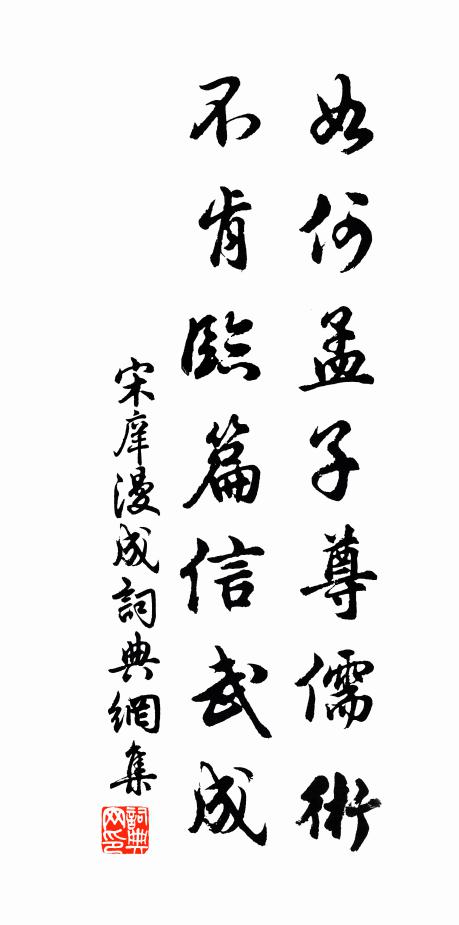 如何孟子尊儒術
不肯臨篇信武成
宋庠漫成詞典網集
詞典網印